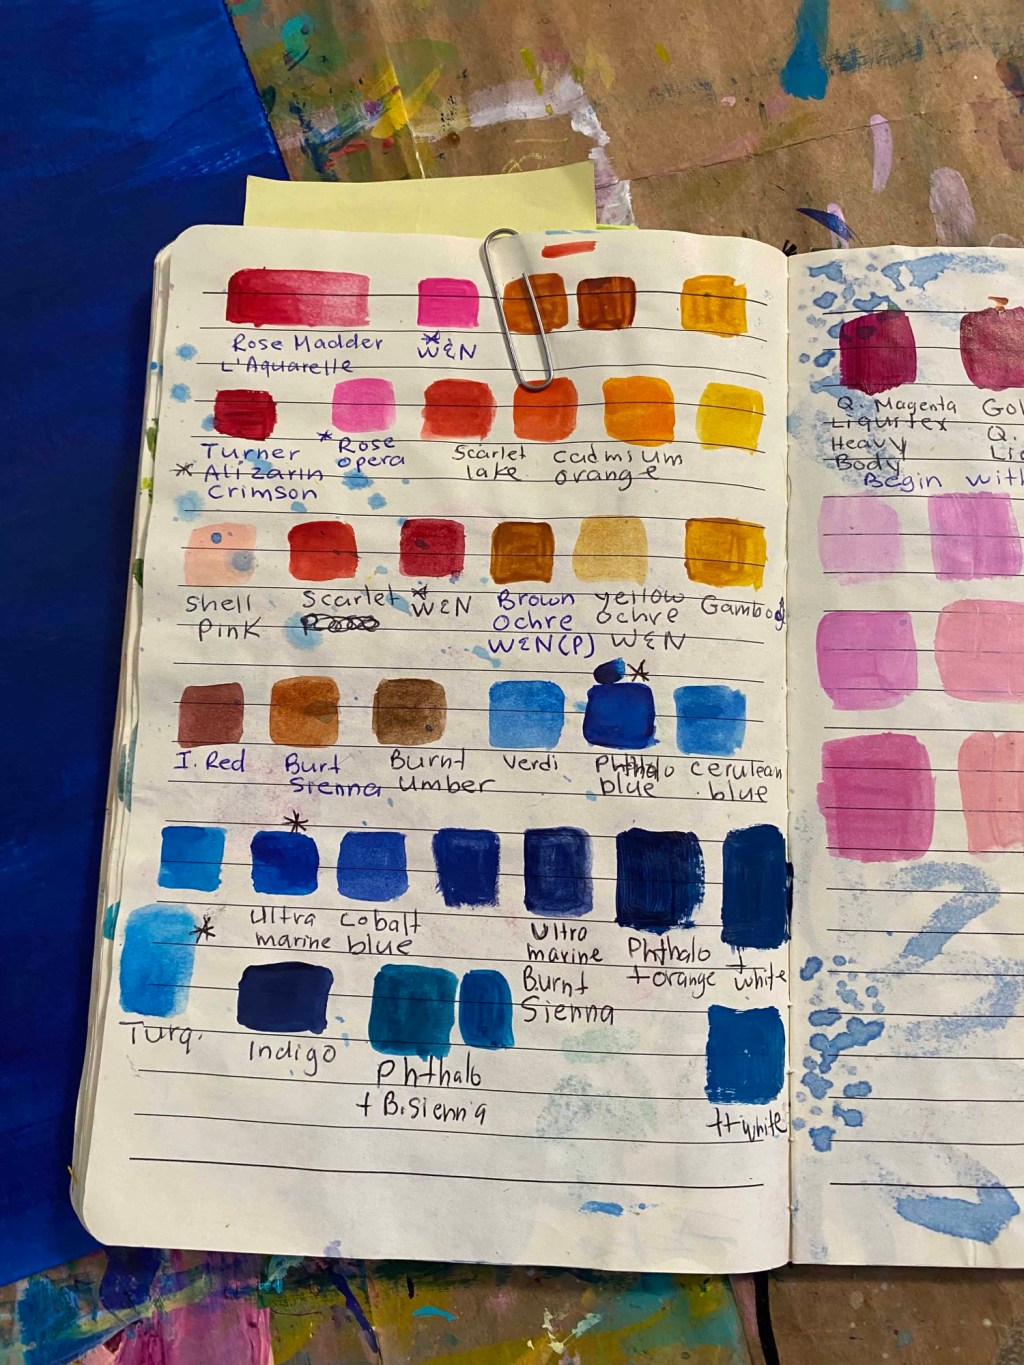 Rose Madder
L'Aquarelle
W&N
Turner
* Alizarin
Crimson
* Rose
opera
Scarlet
lake
Cadmium
orange
Shell
Pink
Scarlet
* W&N
Brown
Ochre
W&N(P)
Yellow
Ochre
W&N
I. Red
Burt
Sienna
Burnt
Umber
Verdi
*
Phthalo
blue
cerulean
blue
*
Ultra
marine
Cobalt
blue
Ultra
marine
Burnt
Sienna
Phthalo
+orange
+
white
*
Turq.
Indigo
Phthalo
+ B.Sienna
++white
Q. Magenta
Liquitex
Heavy
Body
Q.
Begin